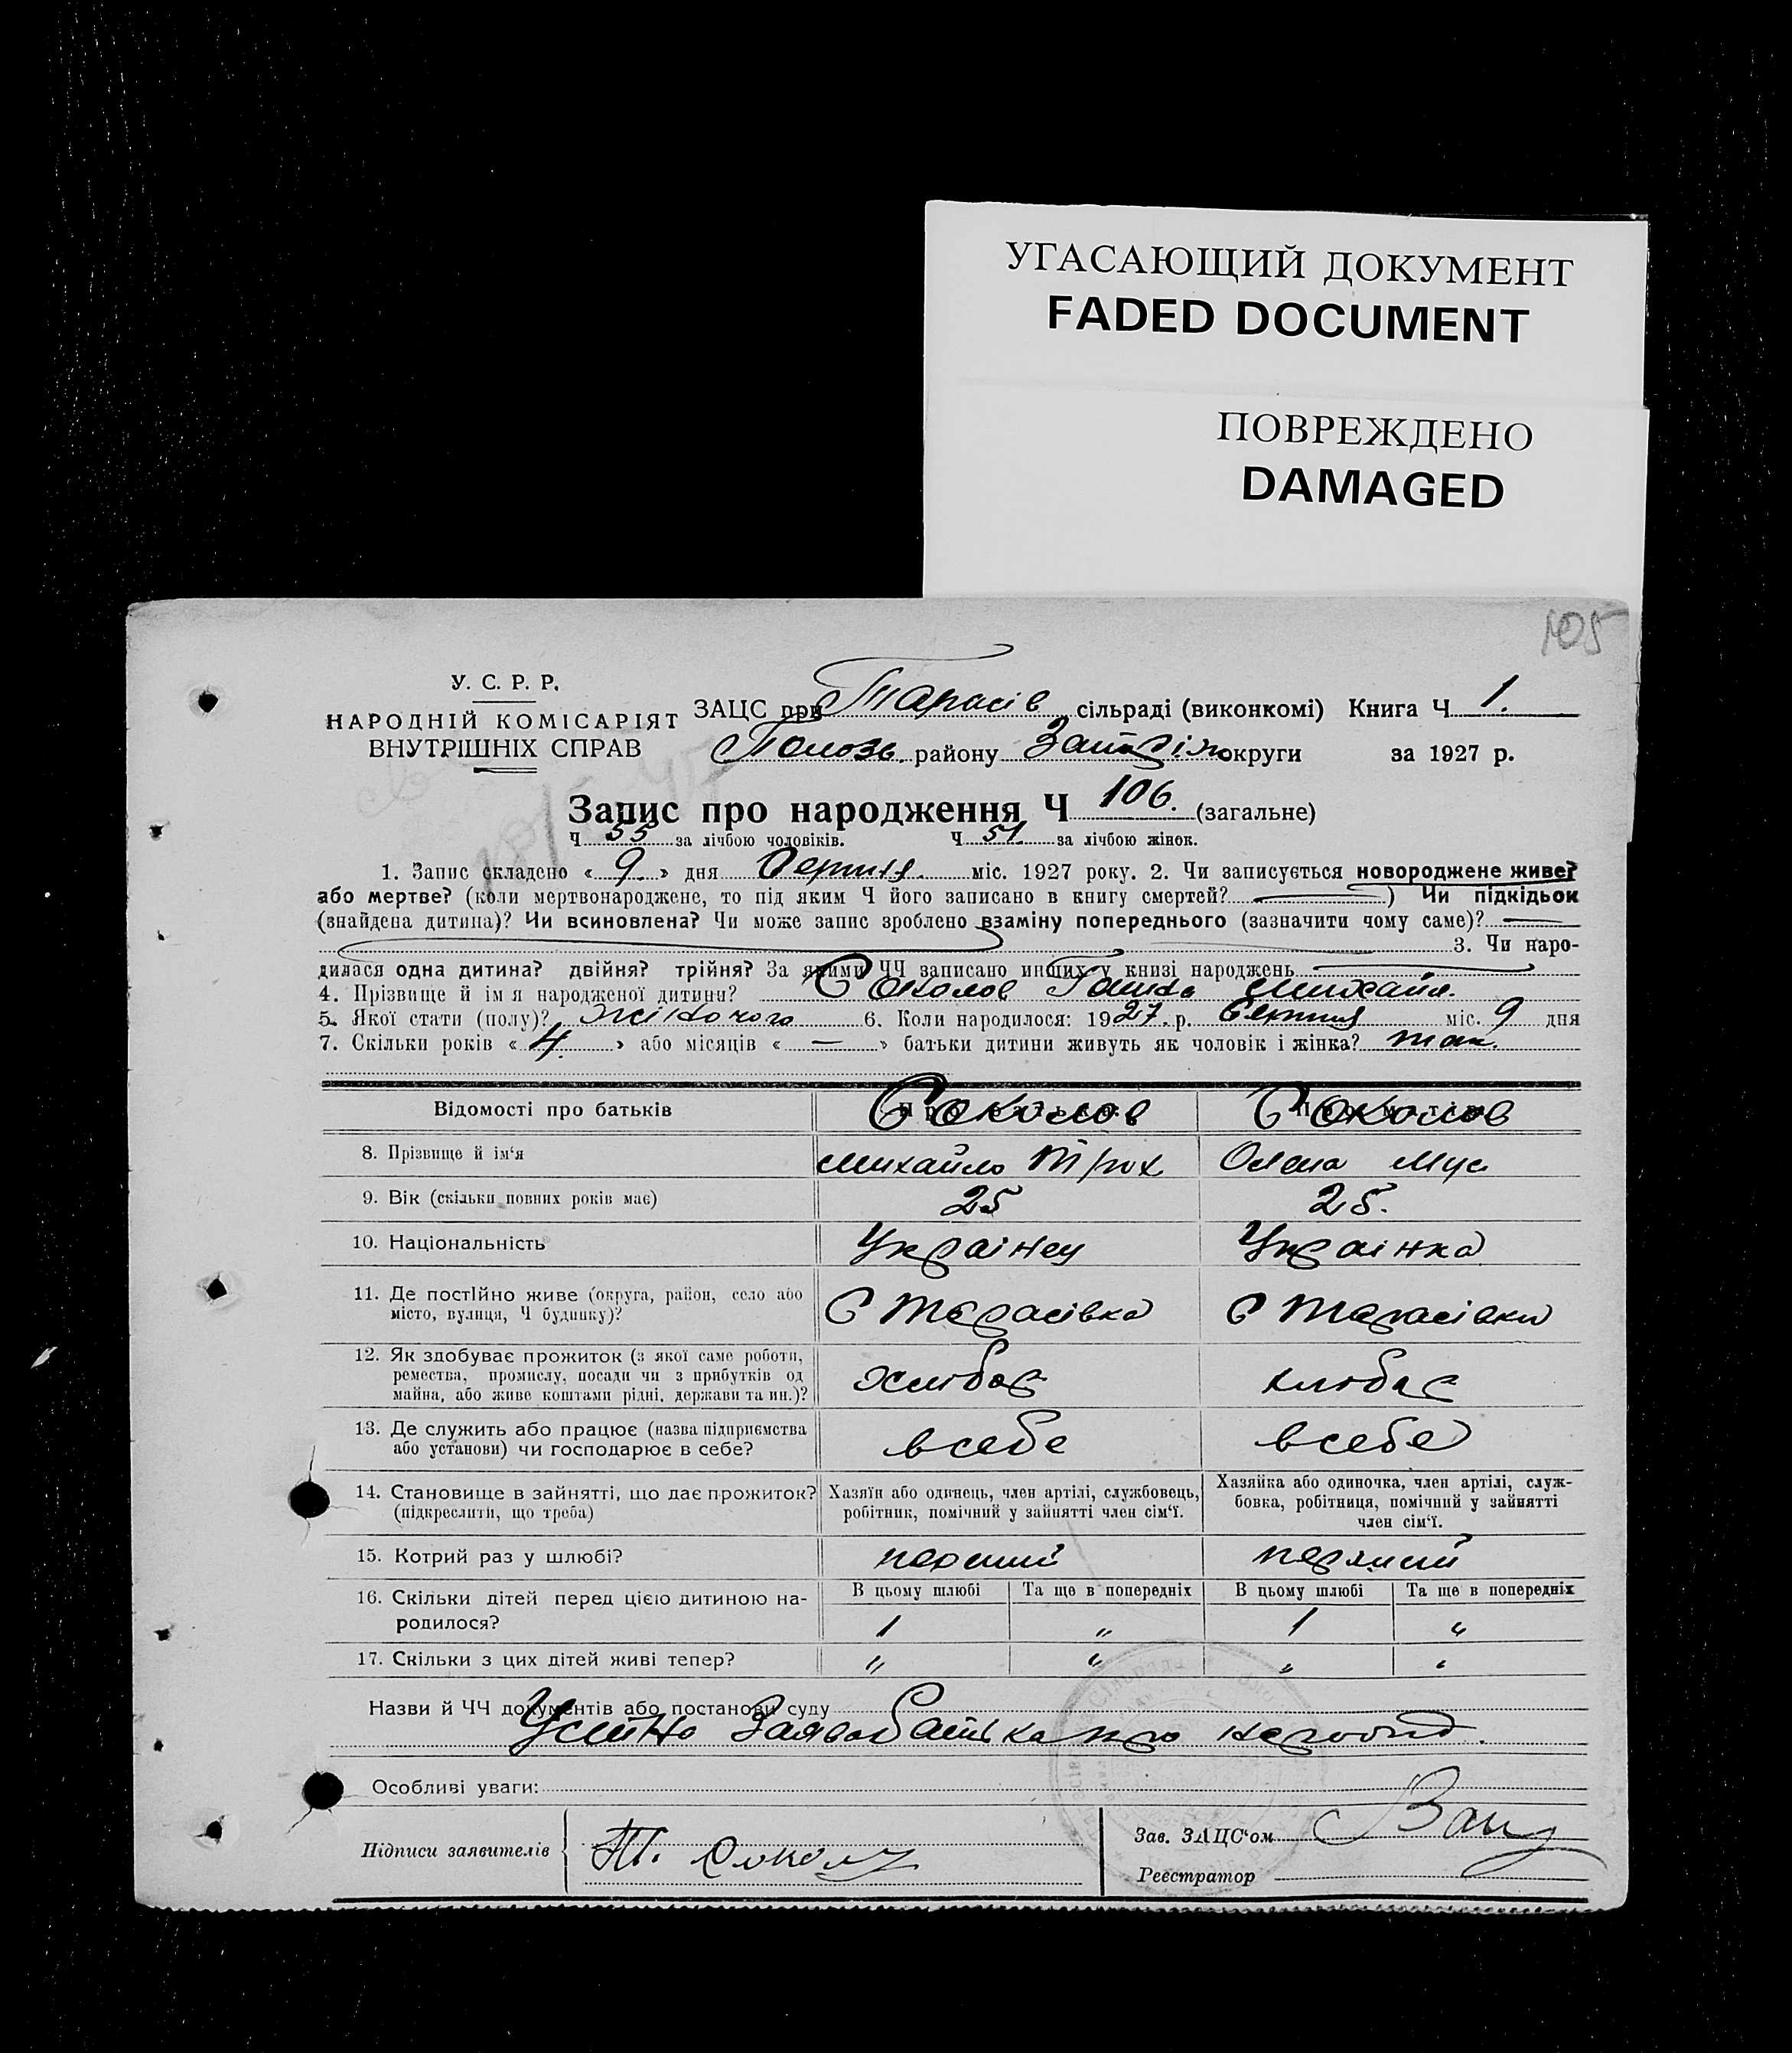 УГАСАЮЩИЙ ДОКУМЕНТ
FADED DOCUMENT
ПОВРЕЖДЕНО
DAMAGED
105
У. С. Р. Р.
НАРОДНІЙ КОМІСАРІЯТ
ВНУТРІШНІХ СПРАВ
ЗАЦС при Тарасів сільраді (виконкомі) Книга Ч 1.
Полозь. району округи за 1927 р.
Запис про народження Ч 106. (загальне)
Ч 55 за лічбою чоловіків. Ч 51. за лічбою жінок.
1. Запис складено « 9. » дня Серпня. міс. 1927 року. 2. Чи записується новороджене живе?
або мертве? (коли мертвонароджене, то під яким Ч його записано в книгу смертей? —) Чи підкідьок
(знайдена дитина)? Чи всиновлена? Чи може запис зроблено взаміну попереднього (зазначити чому саме)? —
3. Чи наро-
дилася одна дитина? двійня? трійня? За якими ЧЧ записано инших у книзі народжень —
4. Прізвище й ім я народженої дитини? Соколов Ганна Михайл.
5. Якої стати (полу)? Жіночого 6. Коли народилося: 1927. р. Серпня міс. 9 дня
7. Скільки років « 4. » або місяців « — » батьки дитини живуть як чоловік і жінка? так.
Відомості про батьків Соколов Соколов
8. Прізвище й ім‘я Михайло Трох Олена Мус
9. Вік (скільки повних років має) 25 25.
10. Національність Українец Українка
11. Де постійно живе (округа, район, село або С Тарасівка С Тарасівки
місто, вулиця, Ч будинку)?
12. Як здобуває прожиток (з якої саме роботи, хлібор хлібор
ремества, промислу, посади чи з прибутків од
майна, або живе коштами рідні, держави та ин.)?
13. Де служить або працює (назва підприємства всебе всебе
або установи) чи господарює в себе?
14. Становище в зайнятті, що дає прожиток? Хазяїн або одинець, член артілі, службовець, Хазяйка або одиночка, член артілі, служ-
(підкреслити, що треба) робітник, помічний у зайнятті член сім‘ї. бовка, робітниця, помічний у зайнятті
член сім‘ї.
15. Котрий раз у шлюбі? перший перший
16. Скільки дітей перед цією дитиною на- В цьому шлюбі Та ще в попередніх В цьому шлюбі Та ще в попередніх
родилося? 1 " 1 "
17. Скільки з цих дітей живі тепер? " " " "
Назви й ЧЧ документів або постанови суду
Устно Заява батька про народ.
Особливі уваги:
Підписи заявителів Зав. ЗАЦС‘ом
Реєстратор